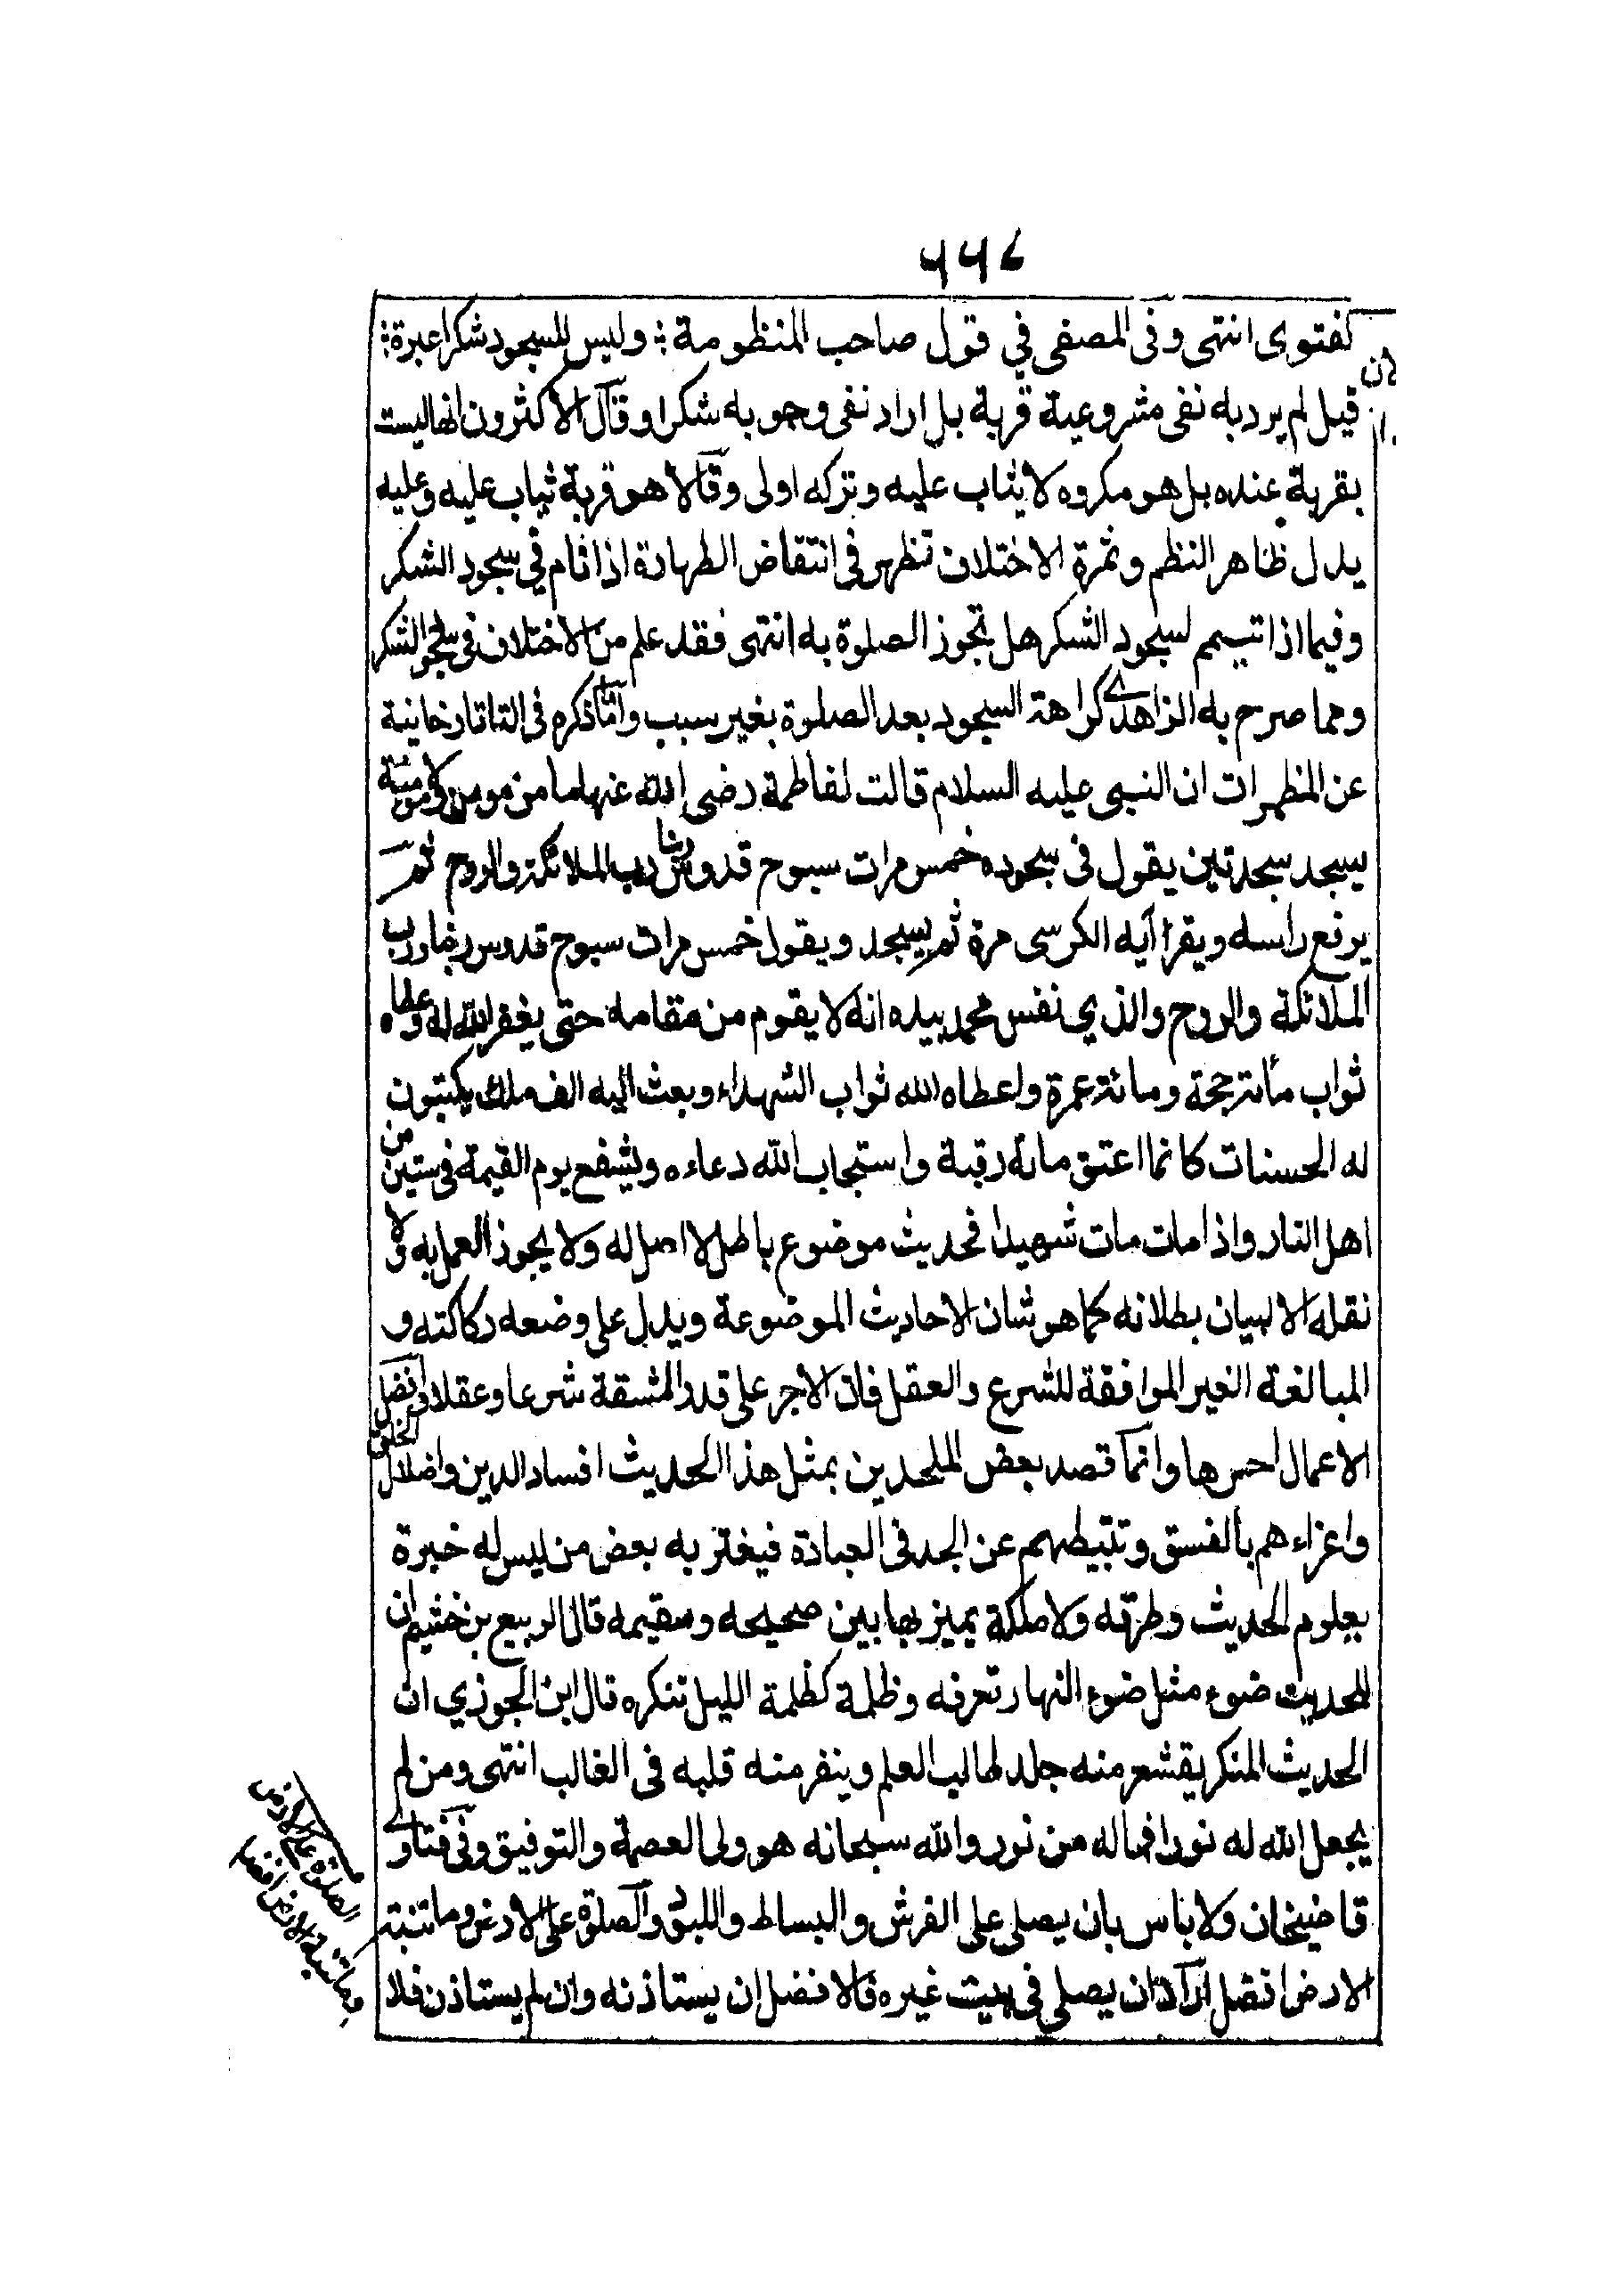 لفتوى انتهى وفى المصفى في قول صاحب المنظومة ؛ وليس للسجود شكرا عبرة ؛
قيل لم يرد به نفى مشروعية قربة بل اراد نفى وجوبه شكرا وقال الاكثرون انها ليست
بقربة عنده بل هو مكروه لا يثاب عليه وتركه اولى وقالا هو قربة يثاب عليه وعليه
يدل ظاهر النظم وثمرة الاختلاف تظهر فى انتقاض الطهارة اذا نام في سجود الشكر
وفيما اذا تيمم لسجود الشكر هل تجوز الصلوة به انتهى فقد علم من الاختلاف فى سجود الشكر
ومما صرح به الزاهدي كراهة السجود بعد الصلوة بغير سبب واما ما ذكره فى التاتارخانية
عن المظمرات ان النبى عليه السلام قالت لفاطمة رضى الله عنها ما من مومن ولا مومنة
يسجد سجدتين يقول فى سجوده خمس مرات سبوح قدوس ربنا رب الملائكة والروح ثم
يرفع راسه ويقرا آيه الكرسى مرة ثم يسجد ويقول خمس مرات سبوح قدوس ربنا ورب
الملائكة والروح والذي نفس محمد بيده انه لا يقوم من مقامه حتى يغفر الله له وعطاه
ثواب مائة حجة ومائة عمرة واعطاه الله ثواب الشهداء وبعث اليه الف ملك يكتبون
له الحسنات كانما اعتق مائة رقبة واستجاب الله دعاءه ويشفع يوم القيمة فى ستين من
اهل النار واذا مات مات شهيدا فحديث موضوع باطل لا اصل له ولا يجوز العمل به ولا
نقله الا لبيان بطلانه كما هو شان الاحاديث الموضوعة ويدل على وضعه ركاكته و
المبالغة الغير الموافقة للشرع والعقل فان الاجر على قدر المشقة شرعا وعقلا وافضل
الاعمال احمزها وانما قصد بعض الملحدين بمثل هذا الحديث افساد الدين واضلال الخلق
واغراءهم بالفسق وتثبيطهم عن الجد فى العبادة فيغتر به بعض من ليس له خبرة
بعلوم الحديث وطرقه ولا ملكة يميز بها بين صحيحه وسقيمه قال الربيع بن خثيم ان
للحديث ضوء مثل ضوء النهار تعرفه وظلمة كظلمة الليل تنكره قال ابن الجوزي ان
الحديث المنكر يقشعر منه جلد طالب العلم وينفر منه قلبه فى الغالب انتهى ومن لم
يجعل الله له نورا فماله من نور والله سبحانه هو ولى العصمة والتوفيق وفى فتاوى
قاضيخان ولا باس بان يصلى على الفرش والبساط واللبود والصلوة على الارض وما تنبته
الارض افضل اراد ان يصلى فى بيت غيره فالافضل ان يستاذنه وان لم يستاذن فلا
الصلوة على الارض
وما تنبته الارض افضل